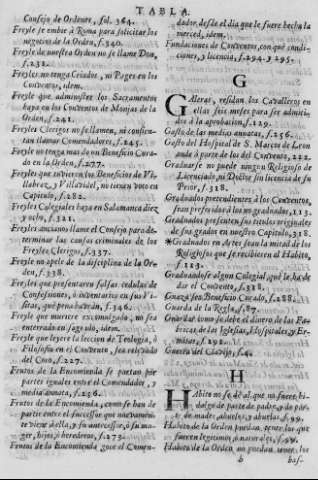 TABLA.
Consejo de Ordenes, fol. 364.
Freyle se embie à Roma para solicitar los
negocios de la Orden, f.340.
Freyle de nuestra Orden no se llame Don,
f.232.
Freyles no tenga Criados, ni Pages en los
Conventos, idem.
Freyle que administre los Sacramentos
haya en los Conventos de Monjas de la
Orden, f.241.
Freyles Clerigos no se llamen, ni consientan
llamar Comendadores, f.245.
Freyle no tenga mas de un Beneficio Curado
en la Orden, f.277.
Freyles que tuvieren los Beneficios de Villabraz,
y Villavidel, no tienen voto en
Capitulo, f.282.
Freyles Colegiales haya en Salamanca diez
y ocho, f.321.
Freyles ancianos llame el Consejo para determinar
las causas criminales de los
Freyles Clerigos, f.337.
Freyle no apele de la disciplina de la Orden,
f.338.
Freyles que presentaren falsas cedulas de
Confesiones, ò mintieren en sus Visitas,
què pena havràn, f.346.
Freyle que muriere excomulgado, no sea
enterrado en sagrado, idem.
Freyle que leyere la leccion de Teología, ò
Filosofia en el Convento, sea relevado
del Coro, f.227.
Frutos de la Encomienda se partan por
partes iguales entre el Comendador, y
media annata, f.256.
Frutos de la Encomienda, como se han de
partir entre el successor que nuevamente
viene à ella, y su antecessor, ò su muger,
hijos, ò herederos, f.273.
Frutos de la Encomienda goce el Comendador
desde el dia que le fuere hecha la
merced, idem.
Fundaciones de Conventos, con què condiciones,
y licencia, f.294. y 295.
G
Galeras, residan los Cavalleros en
ellas seis meses para ser admitidos
à la aprobacion, f.129.
Gasto de las medias annatas, f.256.
Gasto del Hospital de S. Marcos de Leon
ande à parte de los del Convento, 222.
Graduarse no puede ningun Religioso de
Licenciado, ni Doctor sin licencia de su
Prior, f.318.
Graduados pretendientes à los Conventos,
sean preferidos à los no graduados, 113.
Graduados presenten sus titulos originales
de sus grados en nuestro Capitulo, 318.
*Graduados en Artes sean la mitad de los
Religiosos que se recibieren al Habito,
f.123.
Graduandose algun Colegial, què le ha de
dar el Convento, f.328.
Guarda de la Regla, f.87.
H
Habito no se dè al que no fuere hidalgo
de parte de padre, y de parte
de madre, abuelos, y abuelas, f.99.
Habito de la Orden puedan tener los que
fueren legitimos, ò naturales, f.99.
Habito de la Orden no puedan tener los
b
bas-